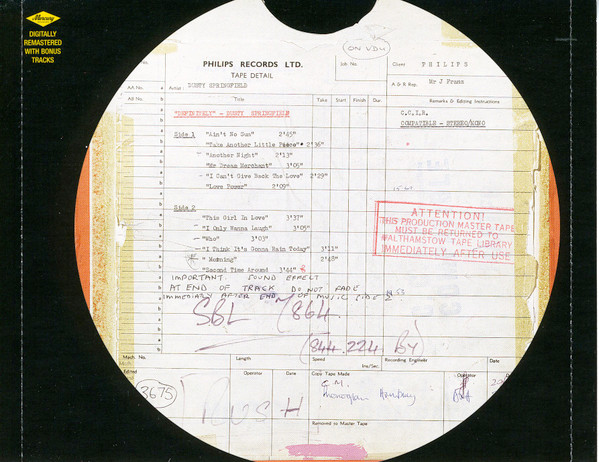 Mercury
DIGITALLY
REMASTERED
WITH BONUS
TRACKS
ON VDU
PHILIPS RECORDS LTD.
TAPE DETAIL
Job No.
Client PHILIPS
AA No. a Artist: DUSTY SPRINGFIELD
A & R Rep. Mr J Franz
AA No. b Title Take Start Finish Dur.
Remarks & Editing Instructions
"DEFINITELY" - DUSTY SPRINGFIELD
C.C.I.R.
COMPATIBLE - STEREO/MONO
Side 1 "Ain't No Sun" 2'45"
"Take Another Little Piece" 2'36"
"Another Night" 2'13"
"Mr Dream Merchant" 3'05"
"I Can't Give Back The Love" 2'29"
"Love Power" 2'09"
Side 2
"This Girl In Love" 3'37"
"I Only Wanna Laugh" 3'05"
"Who" 3'03"
"I Think It's Gonna Rain Today" 3'11"
"Morning" 2'48"
"Second Time Around" 3'44"
ATTENTION!
THIS PRODUCTION MASTER TAPE
MUST BE RETURNED TO
WALTHAMSTOW TAPE LIBRARY
IMMEDIATELY AFTER USE
IMPORTANT. SOUND EFFECT
AT END OF TRACK DO NOT FADE
IMMEDIATELY AFTER END OF MUSIC SIDE 2
SBL 7864
(844.224 BY)
Mach. No. Length Speed Ins/Sec. Recording Engineer Date
Edited Operator Date Copy Tape Made Operator
3675
RUSH
C.M.
Phonogram Hamburg
Removed to Master Tape